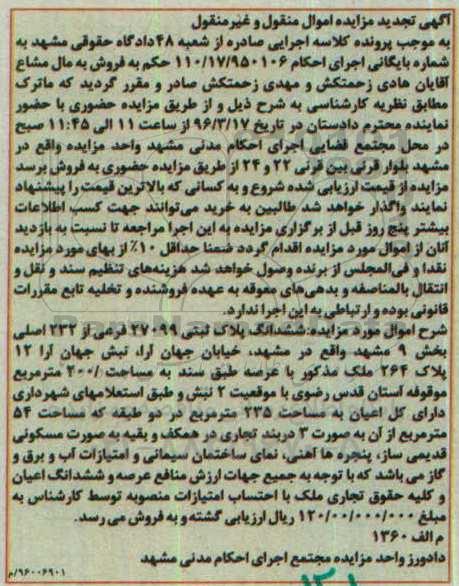 آگهی تجدید مزایده اموال منقول و غیرمنقول
به موجب پرونده کلاسه اجرایی صادره از شعبه ۴۸ دادگاه حقوقی مشهد به
شماره بایگانی اجرای احکام ۱۱۰/۱۷/۹۵۰۱۰۶ حکم به فروش به مال مشاع
آقایان هادی زحمتکش و مهدی زحمتکش صادر و مقرر گردید که ماترک
مطابق نظریه کارشناسی به شرح ذیل و از طریق مزایده حضوری با حضور
نماینده محترم دادستان در تاریخ ۹۶/۳/۱۷ از ساعت ۱۱ الی ۱۱:۴۵ صبح
در محل مجتمع قضایی اجرای احکام مدنی مشهد واحد مزایده واقع در
مشهد بلوار قرنی بین قرنی ۲۲ و ۲۴ از طریق مزایده حضوری به فروش برسد
مزایده از قیمت ارزیابی شده شروع و به کسانی که بالاترین قیمت را پیشنهاد
نمایند واگذار خواهد شد طالبین به خرید می‌توانند جهت کسب اطلاعات
بیشتر پنج روز قبل از برگزاری مزایده به این اجرا مراجعه تا نسبت به بازدید
آنان از اموال مورد مزایده اقدام گردد ضمنا حداقل ۱۰٪ از بهای مورد مزایده
نقدا و فی‌المجلس از برنده وصول خواهد شد هزینه‌های تنظیم سند و نقل و
انتقال بالمناصفه و بدهی‌های معوقه به عهده فروشنده و تخلیه تابع مقررات
قانونی بوده و ارتباطی به این اجرا ندارد.
شرح اموال مورد مزایده: ششدانگ پلاک ثبتی ۴۷۰۹۹ فرعی از ۲۳۲ اصلی
بخش ۹ مشهد واقع در مشهد، خیابان جهان آرا، نبش جهان آرا ۱۲
پلاک ۲۶۴ ملک مذکور با عرصه طبق سند به مساحت ۴۰۰/۰ مترمربع
موقوفه آستان قدس رضوی با موقعیت ۲ نبش و طبق استعلامهای شهرداری
دارای کل اعیان به مساحت ۲۳۵ مترمربع در دو طبقه که مساحت ۵۴
مترمربع از آن به صورت ۳ دربند تجاری در همکف و بقیه به صورت مسکونی
قدیمی ساز، پنجره ها آهنی، نمای ساختمان سیمانی و امتیازات آب و برق و
گاز می باشد که با توجه به جمیع جهات ارزش منافع عرصه و ششدانگ اعیان
و کلیه حقوق تجاری ملک با احتساب امتیازات منصوبه توسط کارشناس به
مبلغ ۱۲۰/۰۰/۰۰۰/۰۰۰ ریال ارزیابی گشته و به فروش می رسد.
م الف ۱۳۶۰
دادورز واحد مزایده مجتمع اجرای احکام مدنی مشهد
۹۶۰۰۶۹۰۱/م